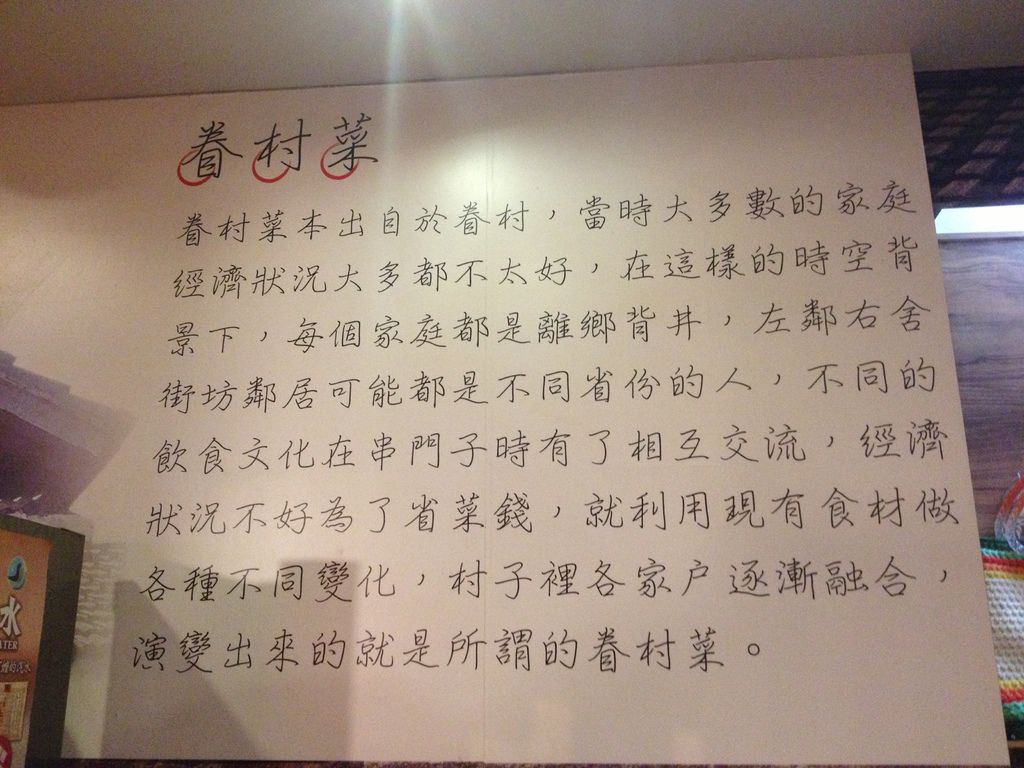 眷村菜
眷村菜本出自於眷村，當時大多數的家庭
經濟狀況大多都不太好，在這樣的時空背
景下，每個家庭都是離鄉背井，左鄰右舍
街坊鄰居可能都是不同省份的人，不同的
飲食文化在串門子時有了相互交流，經濟
狀況不好為了省菜錢，就利用現有食材做
各種不同變化，村子裡各家户逐漸融合，
演變出來的就是所謂的眷村菜。
水